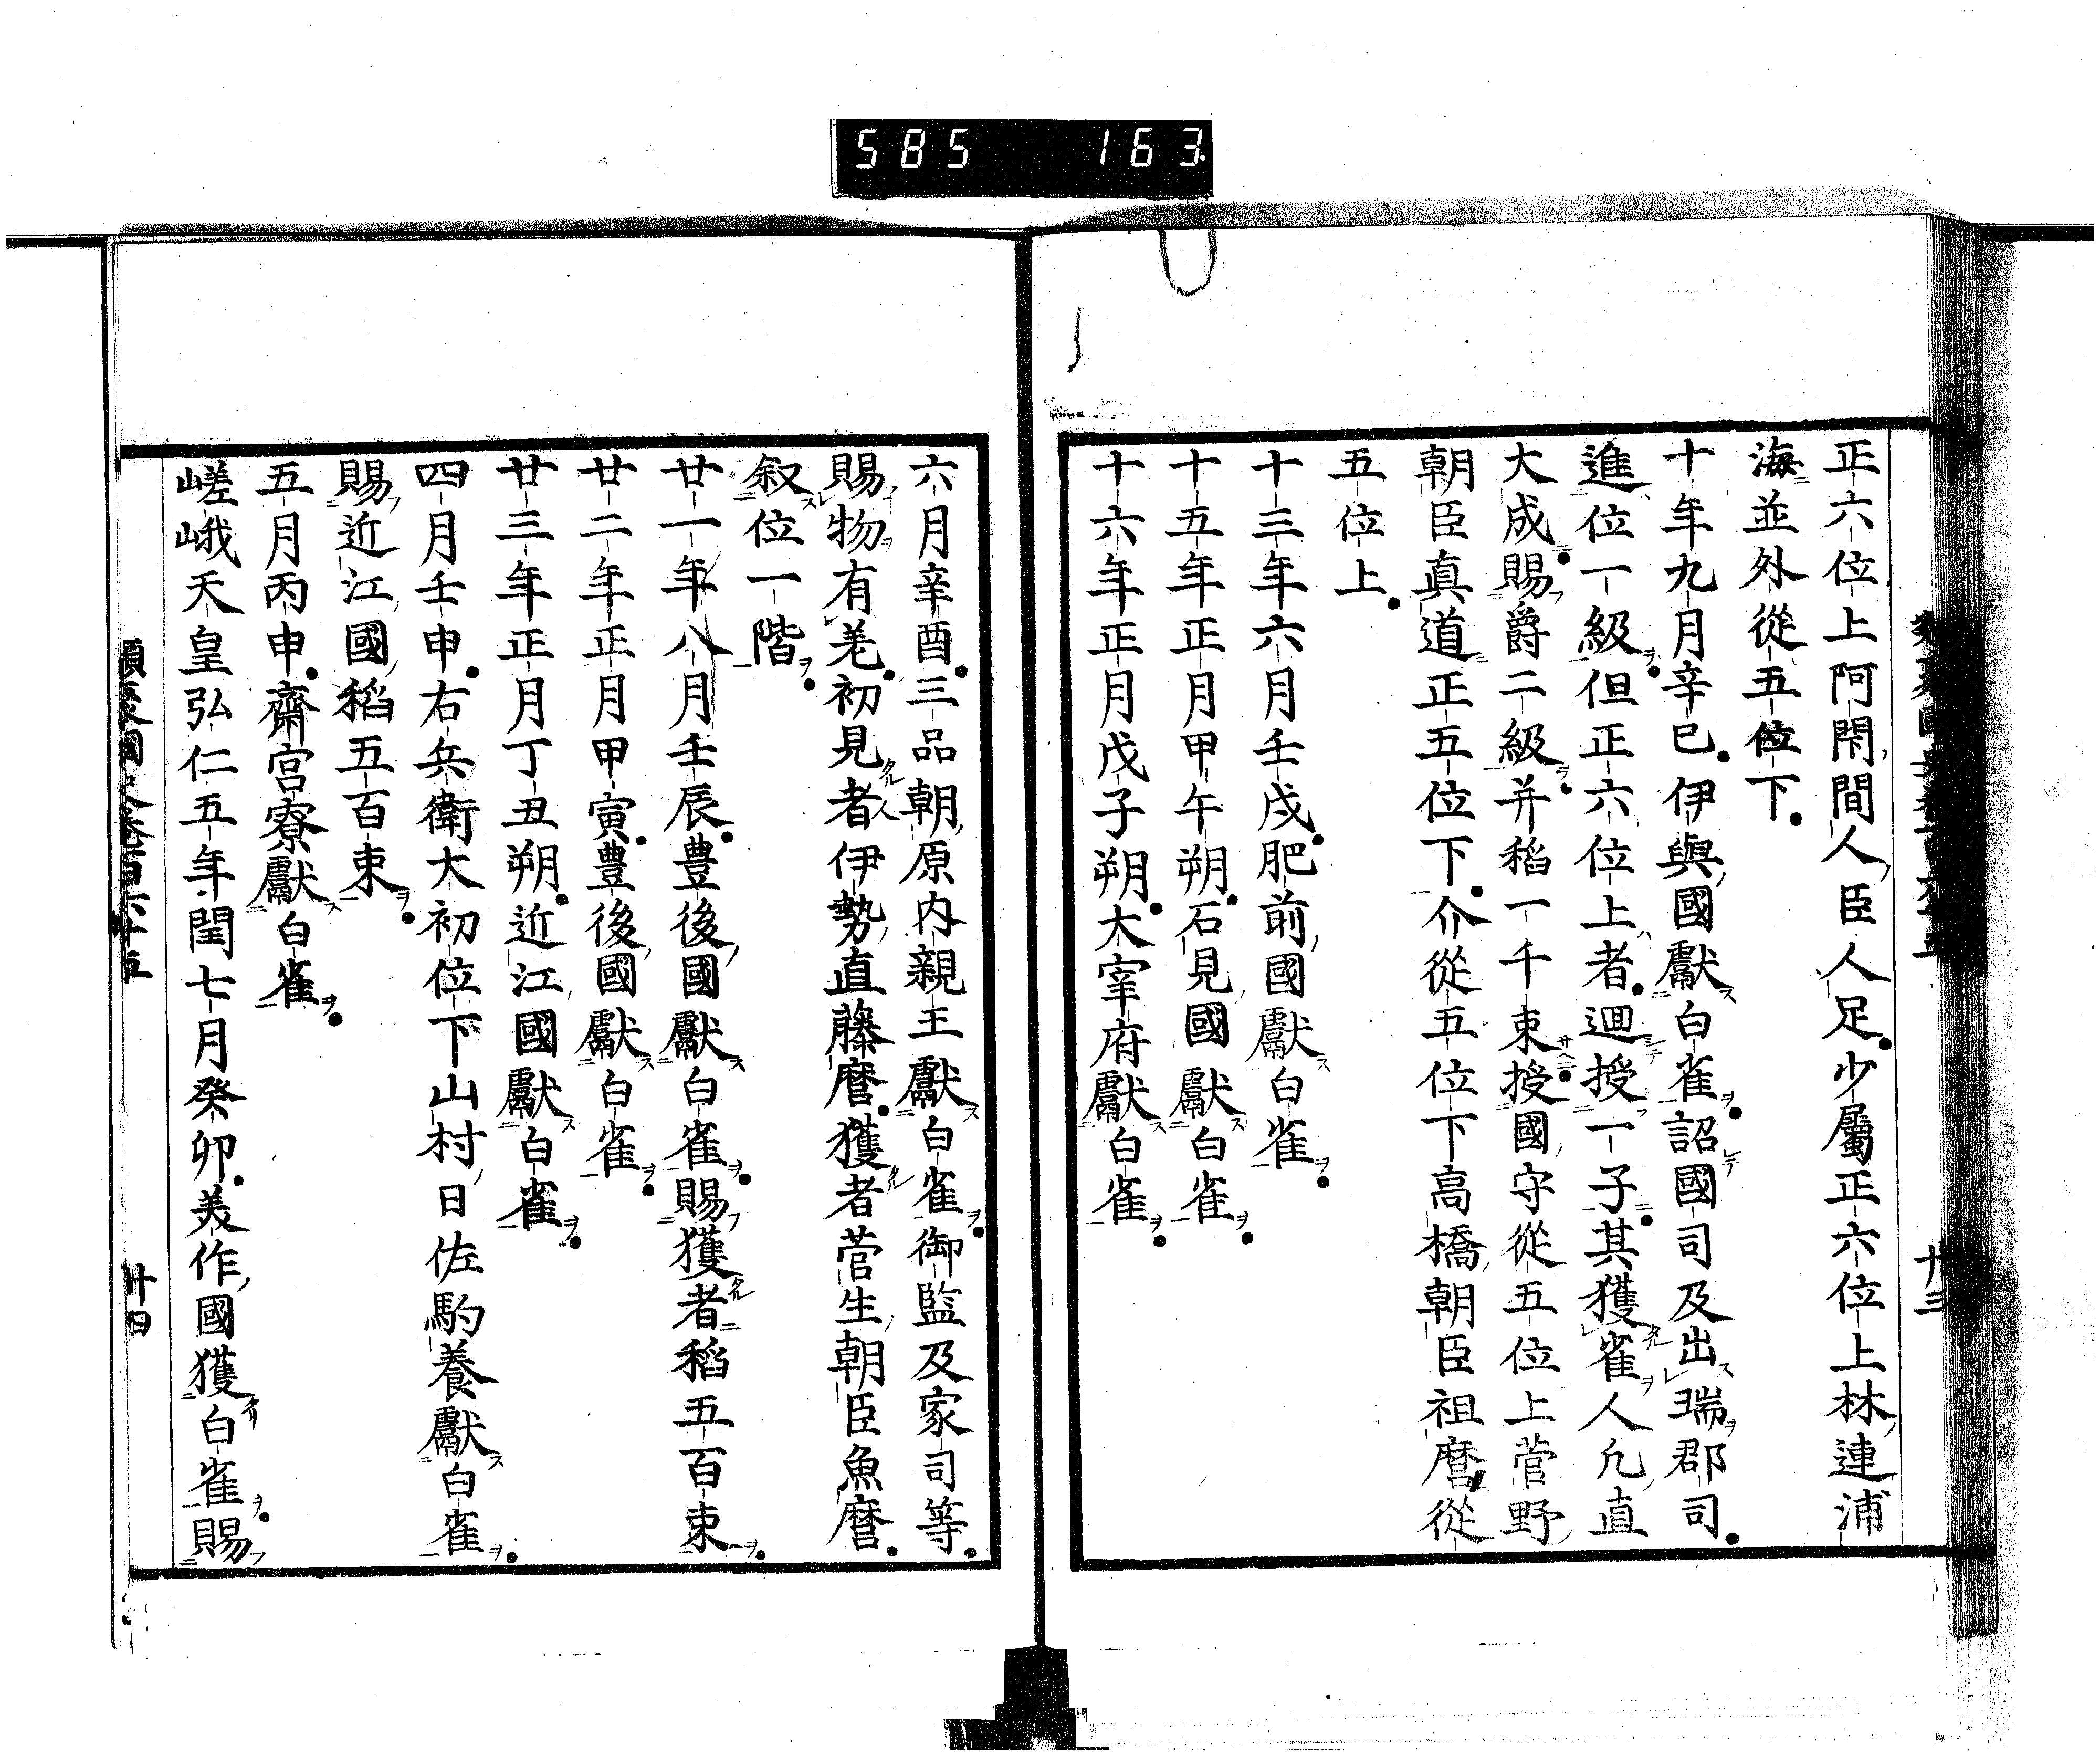 585 163
正六位上阿閇間人臣人足少屬正六位上林連浦
海並外從五位下
十年九月辛巳伊與國獻白雀詔國司及出瑞郡司
進位一級但正六位上者廻授一子其獲雀人凡直
大成賜爵二級并稻一千束授國守從五位上菅野
朝臣真道正五位下介從五位下高橋朝臣祖麿從
五位上
十三年六月壬戌肥前國獻白雀
十五年正月甲午朔石見國獻白雀
十六年正月戊子朔大宰府獻白雀
六月辛酉三品朝原内親王獻白雀御監及家司等
賜物有差初見者伊勢直藤麿獲者菅生朝臣魚麿
叙位一階
廿一年八月壬辰豊後國獻白雀賜獲者稻五百束
廿二年正月甲寅豊後國獻白雀
廿三年正月丁丑朔近江國獻白雀
四月壬申右兵衛大初位下山村日佐駒養獻白雀
賜近江國稻五百束
五月丙申齋宮寮獻白雀
嵯峨天皇弘仁五年閏七月癸卯美作國獲白雀賜